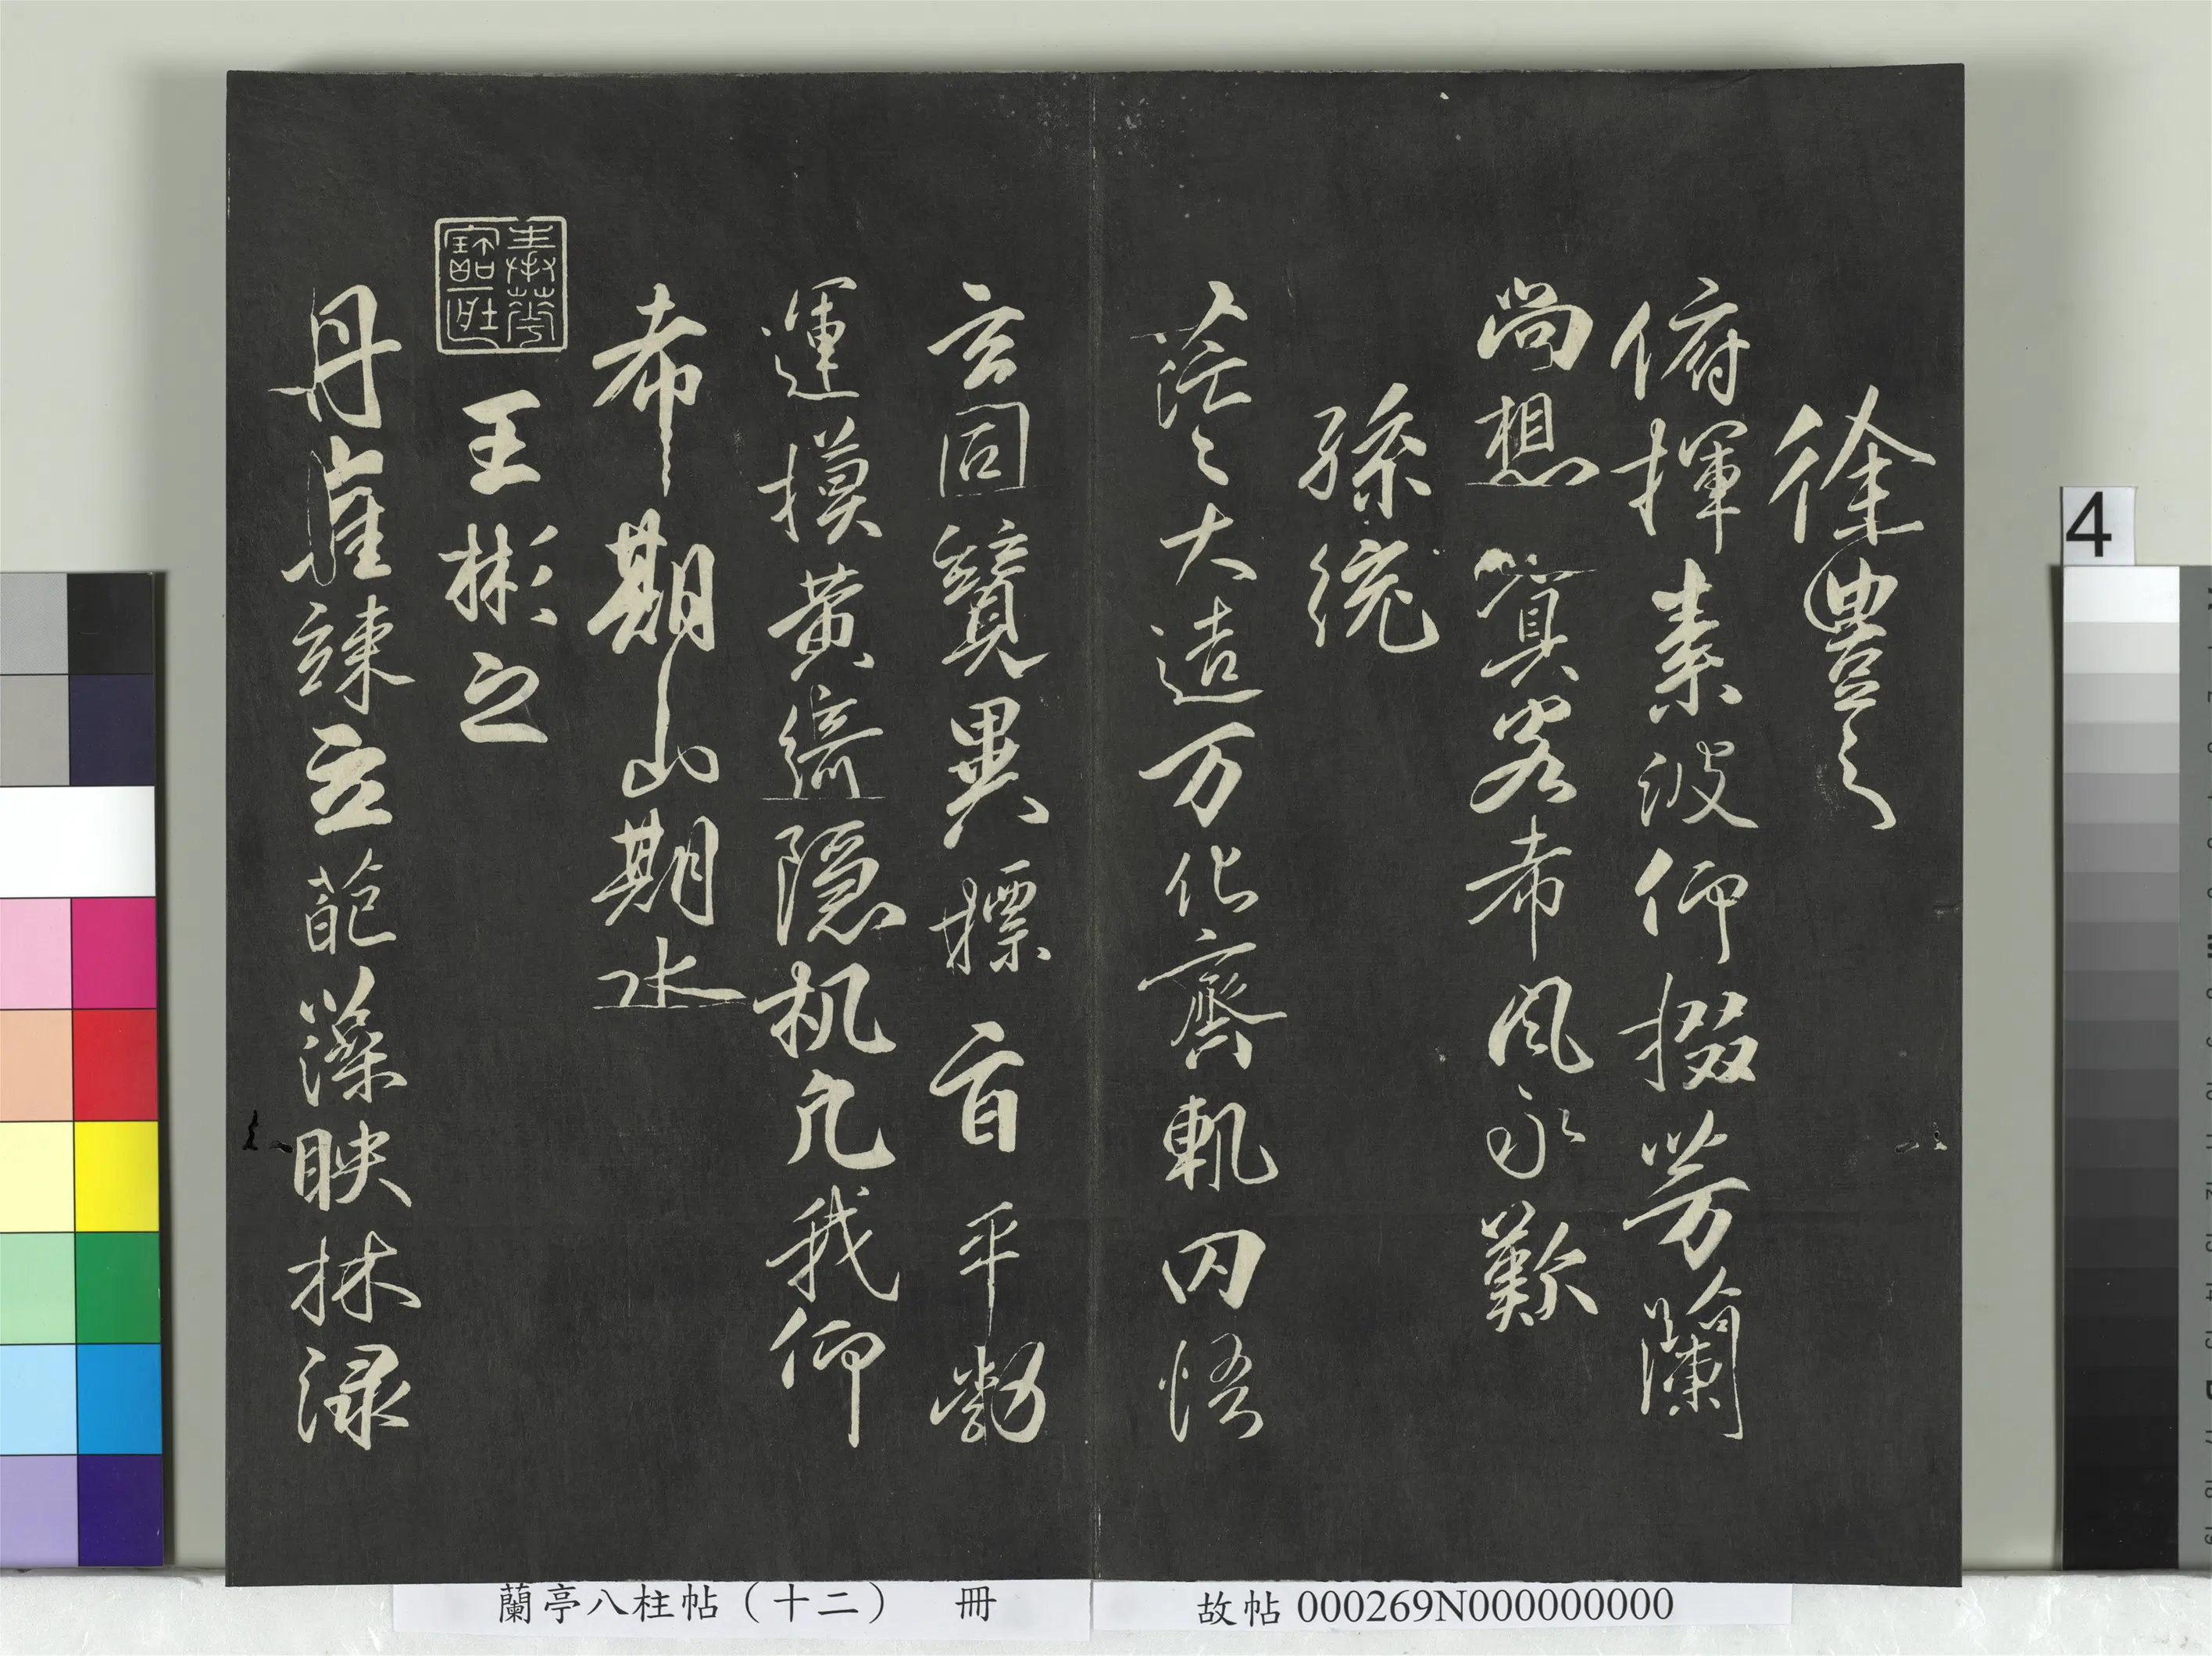 徐豐之
俯揮素波仰掇芳蘭
尚想冥客希風永歎
孫統
茫々大造万化齊軌罔悟
玄同競異摽旨平勃
運摸黃綺隱机凢我仰
希期山期水
王彬之
丹崖竦立葩藻映林渌
蘭亭八柱帖（十二） 冊
故帖000269N000000000
4